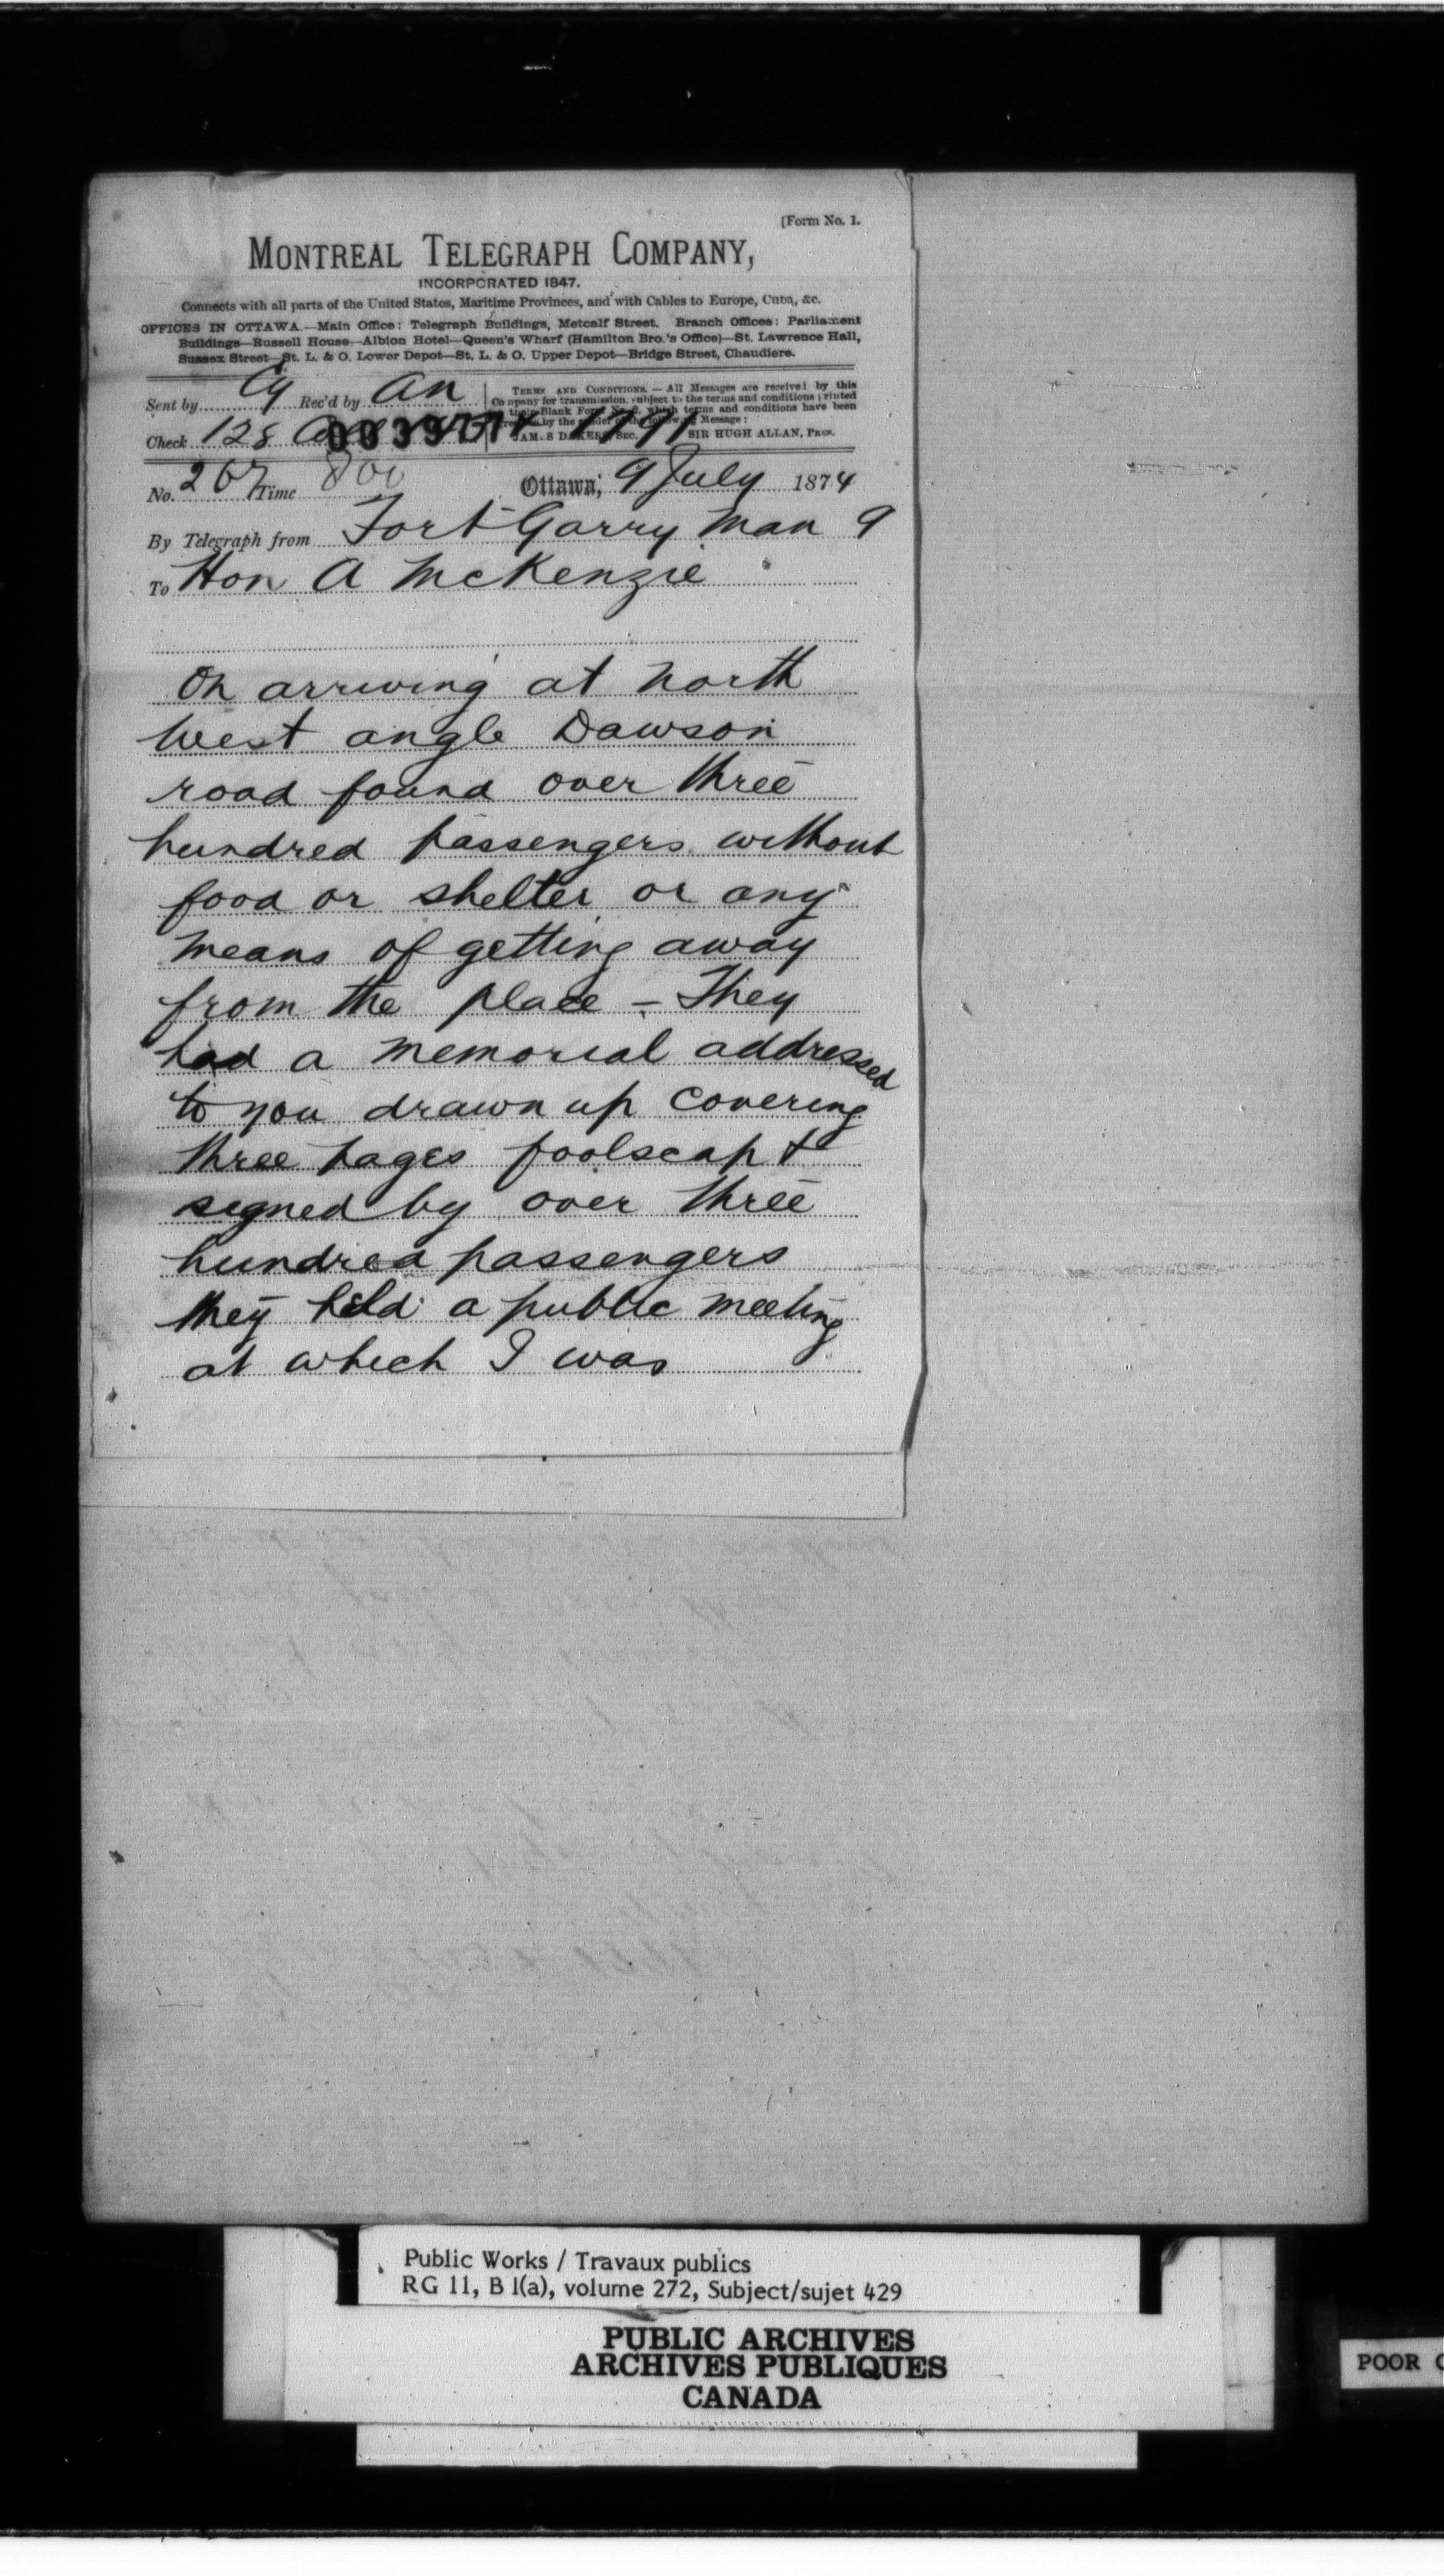 [Form No. 1.
MONTREAL TELEGRAPH COMPANY,
INCORPORATED 1847.
Connects with all parts of the United States, Maritime Provinces, and with Cables to Europe, Cuba, &c.
OFFICES IN OTTAWA.—Main Office: Telegraph Buildings, Metcalf Street. Branch Offices: Parliament
Buildings—Russell House—Albion Hotel—Queen's Wharf (Hamilton Bro.'s Office)—St. Lawrence Hall,
Sussex Street—St. L. & O. Lower Depot—St. L. & O. Upper Depot—Bridge Street, Chaudiere.
Sent by Cy Rec'd by An
TERMS AND CONDITIONS.—All Messages are received by this
Company for transmission, subject to the terms and conditions printed
their Blank Form No. 2, which terms and conditions have been
by the sender of the following Message:
JAMES DAKERS, SEC. SIR HUGH ALLAN, PRES.
Check 128
No. 267 Time 800 Ottawa, 9 July 1874
By Telegraph from Fort Garry Man 9
To Hon A McKenzie
On arriving at North
West angle Dawson
road found over three
hundred passengers without
food or shelter or any
means of getting away
from the place – They
had a memorial addressed
to you drawn up covering
three pages foolscap &
signed by over three
hundred passengers
they held a public meeting
at which I was
Public Works / Travaux publics
RG 11, B 1(a), volume 272, Subject/sujet 429
PUBLIC ARCHIVES
ARCHIVES PUBLIQUES
CANADA
POOR